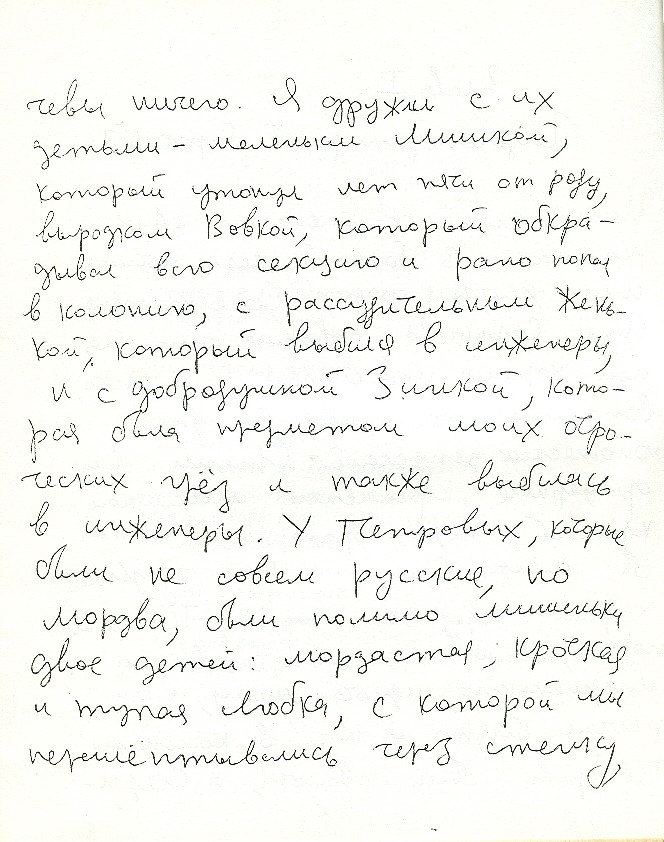 чевы ничего. Я дружил с их
детьми – маленьким Мишкой,
который утонул лет пяти от роду,
выродком Вовкой, который обкра-
дывал всю секцию и рано попал
в колонию, с рассудительным Жень-
кой, который выбился в инженеры,
и с добродушной Зинкой, кото-
рая была предметом моих отро-
ческих грёз и также выбилась
в инженеры. У Петровых, которые
были не совсем русские, но
мордва, были помимо мишеньки
двое детей: мордастая, кроткая
и тупая Любка, с которой мы
перешёптывались через стенку